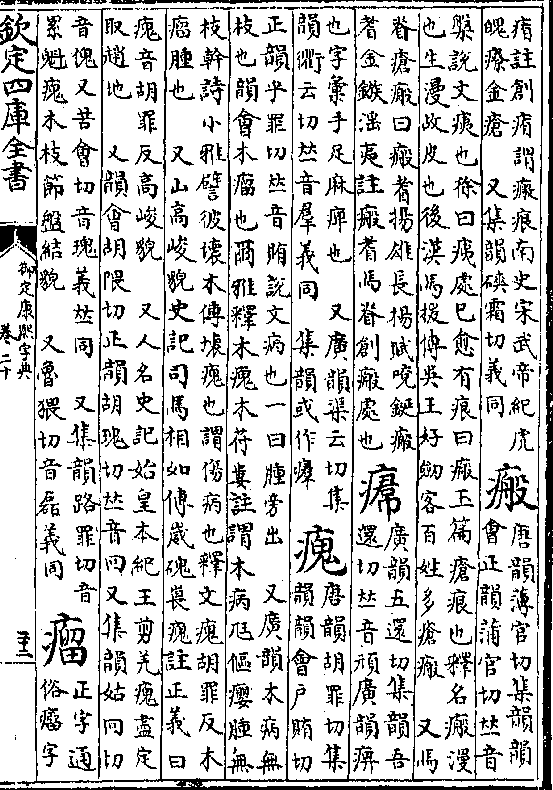 痏註創痏謂瘢痕南史宋武帝紀虎
魄療金瘡　又集韻磢霜切義同
瘢
唐韻薄官切集韻韻
會正韻蒲官切𠀤音
槃說文痍也徐曰痍處已愈有痕曰瘢玉篇瘡痕也釋名瘢漫
也生漫故皮也後漢馬援傳吳王好劒客百姓多瘡瘢　又馬
脊瘡瘢曰瘢耆揚雄長揚賦吮鋋瘢
耆金鏃淫夷註瘢耆馬脊創瘢處也
廣韻五還切集韻吾
還切𠀤音頑廣韻痹
也字彙手足麻痹也　又廣韻渠云切集
韻衢云切𠀤音羣義同　集韻或作
瘣
唐韻胡罪切集
韻韻會戶賄切
正韻乎罪切𠀤音賄說文病也一曰腫旁出　又廣韻木病無
枝也韻會木瘤也爾雅釋木瘣木苻婁註謂木病尫傴癭腫無
枝幹詩小雅譬彼壞木傳壞瘣也謂傷病也釋文瘣胡罪反木
瘤腫也　又山高峻貌史記司馬相如傳崴磈㟪瘣註正義曰
瘣音胡罪反高峻貌　又人名史記始皇本紀王翦羌瘣盡定
取趙地　又韻會胡隈切正韻胡瑰切𠀤音回又集韻姑回切
音傀又苦會切音瑰義𠀤同　又集韻路罪切音
累魁瘣木枝節盤結貌　又魯猥切音磊義同
瘤
正字通
俗癅字
欽定四庫全書
御定康熙字典
卷二十